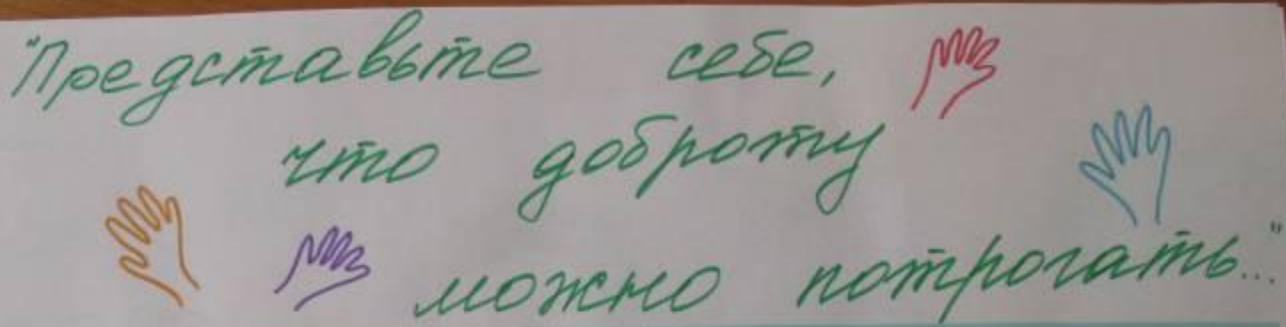 "Представьте себе,
что доброту
можно потрогать..."